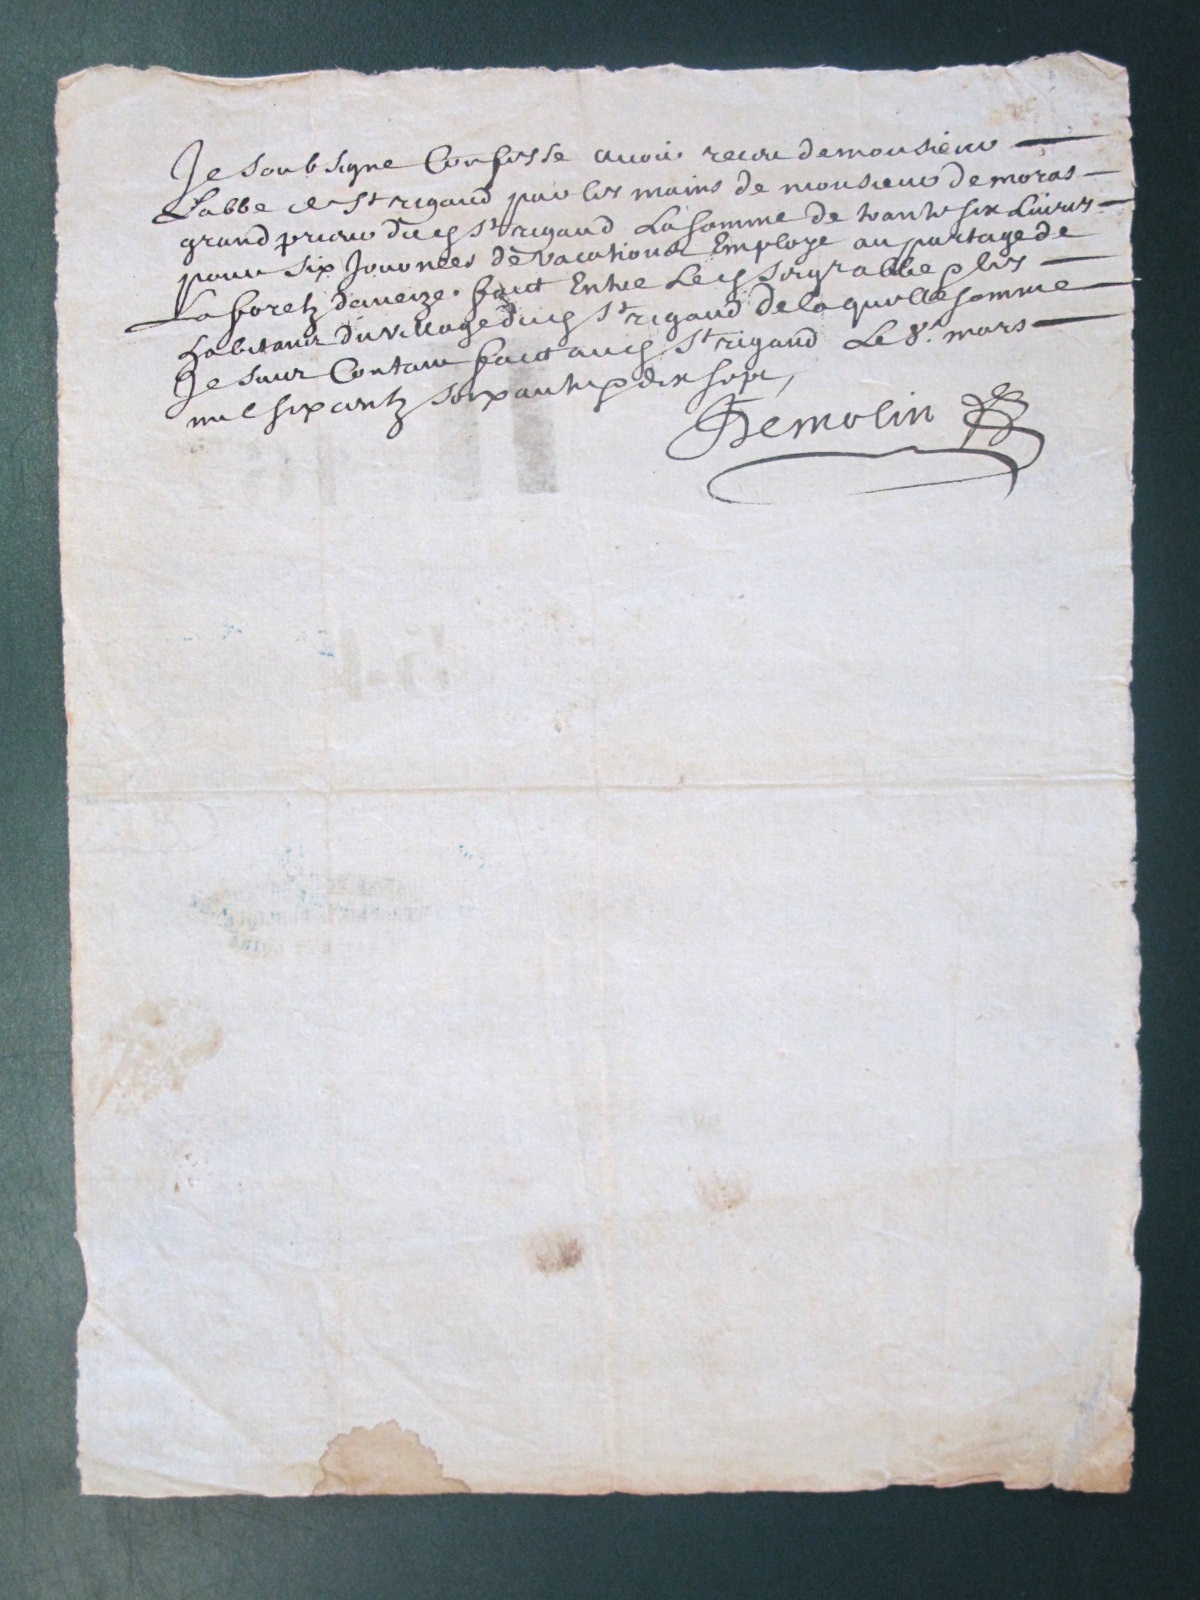 Je soubsigne Confesse avoir receu de monsieur
Labbe de St rigaud par les mains de monsieur de moras
grand prieur dud St rigaud La somme de trante six Livres
pour six Journees de vacations Employe au partage de
La foretz daveize fait Entre Led seigr abbe & les
habitans du village dud St rigaud de laquelle somme
Je suis Contant fait aud St rigaud Le 8e mars
mil six centz soixante & dix sept,
Demolin